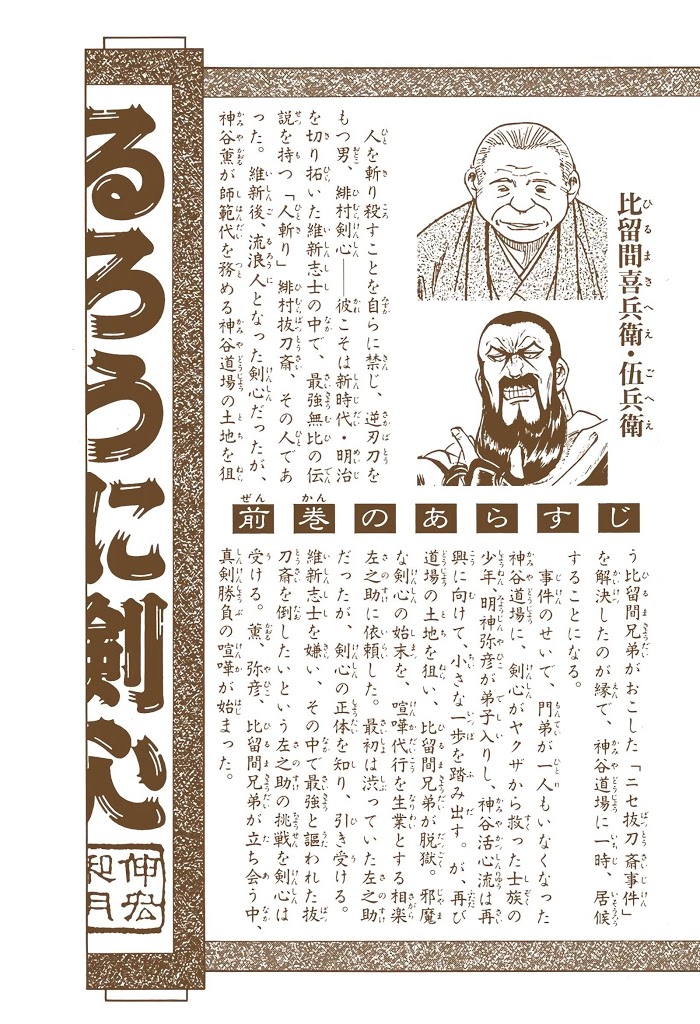 比留間喜兵衛・伍兵衛
人を斬り殺すことを自らに禁じ、逆刃刀を
もつ男、緋村剣心——彼こそは新時代・明治
を切り拓いた維新志士の中で、最強無比の伝
説を持つ「人斬り」緋村抜刀斎、その人であ
った。維新後、流浪人となった剣心だったが、
神谷薫が師範代を務める神谷道場の土地を狙
前巻のあらすじ
う比留間兄弟がおこした「ニセ抜刀斎事件」
を解決したのが縁で、神谷道場に一時、居候
することになる。
事件のせいで、門弟が一人もいなくなった
神谷道場に、剣心がヤクザから救った士族の
少年、明神弥彦が弟子入りし、神谷活心流は再
興に向けて、小さな一歩を踏み出す。が、再び
道場の土地を狙い、比留間兄弟が脱獄。邪魔
な剣心の始末を、喧嘩代行を生業とする相楽
左之助に依頼した。最初は渋っていた左之助
だったが、剣心の正体を知り、引き受ける。
維新志士を嫌い、その中で最強と謳われた抜
刀斎を倒したいという左之助の挑戦を剣心は
受ける。薫、弥彦、比留間兄弟が立ち会う中、
真剣勝負の喧嘩が始まった。
るろうに剣心
和月
伸宏